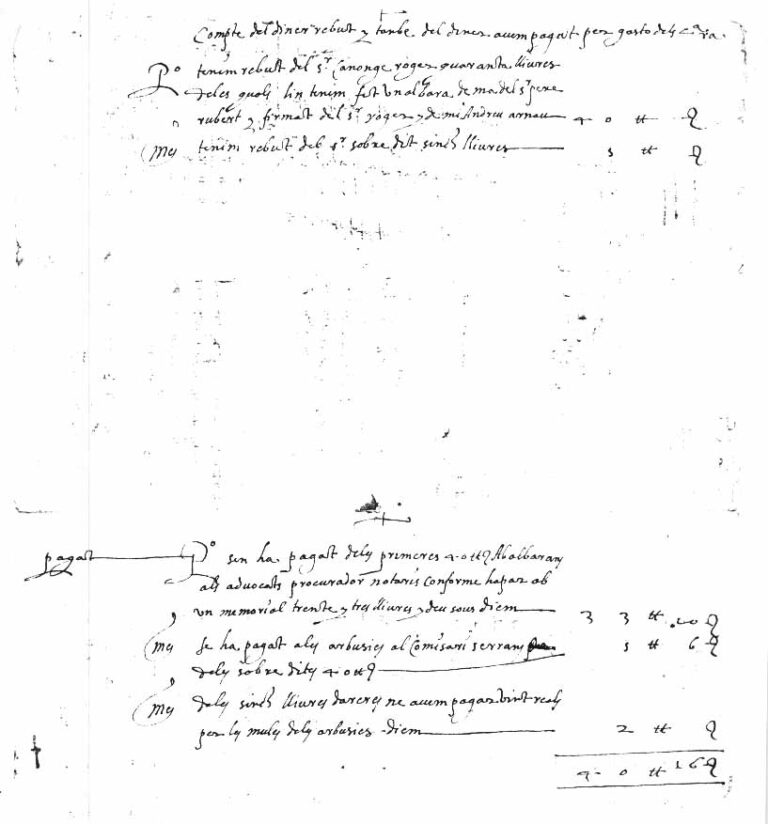 Compte del diner rebut y tanbe del diner avem pagat per gasto dels
P.º tenim rebut del s.r Canonge roger quaranta lliures
deles quals lin tenim fet un albara de ma del s.r pere
rubert y firmat del s.r roger y de mi Andreu arnau 4 0 tt ꝯ
Mes tenim rebut del s.r sobre dit sinch lliures 5 tt ꝯ
pagat P.º sen ha pagat dels primeres 4 0 tt ꝯ Ab albarans
als advocats procurador notaris conforme hapar ab
un memorial trenta y tres lliures y deu sous diem 3 3 tt 10 ꝯ
Mes se ha pagat als arbusies al Comisari serrans 5 tt 6 ꝯ
dels sobre dits 4 0 tt ꝯ
Mes dels sinch lliures dareres ne avem pagat vint reals
per les mules dels arbusies diem 2 tt ꝯ
4 0 tt 16 ꝯ